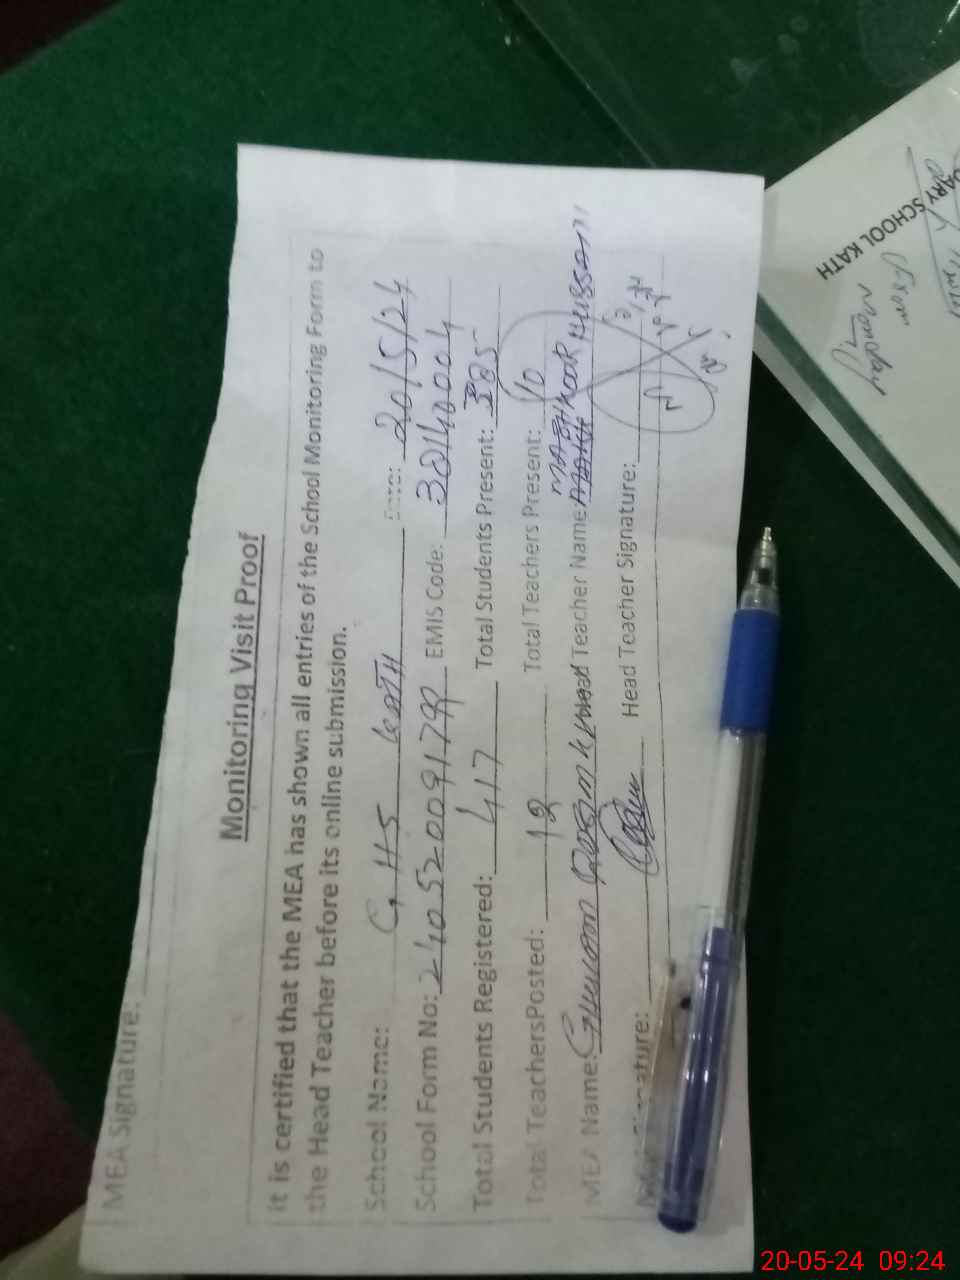 MEA Signature:
Monitoring Visit Proof
It is certified that the MEA has shown all entries of the School Monitoring Form to
the Head Teacher before its online submission.
School Name: GHS KATH Date: 20/5/24
School Form No: EMIS Code: 38140004
Total Students Registered: 417 Total Students Present: 385
Total TeachersPosted: 12 Total Teachers Present: 10
MEA Name: Head Teacher Name: HUSSAIN
Signature: Head Teacher Signature:
SCHOOL KATH
Monday
20-05-24 09:24